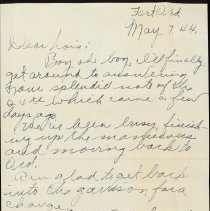 Fort Ord
May 7, 44.
Dear Lois:
Boy oh boy, I'll finally
get around to answering
your splendid note of the
24th which came a few
days ago.
We've been busy finish-
ing up the maneuvers
and moving back to
Ord.
Am glad to get back
into the garrison for a
change